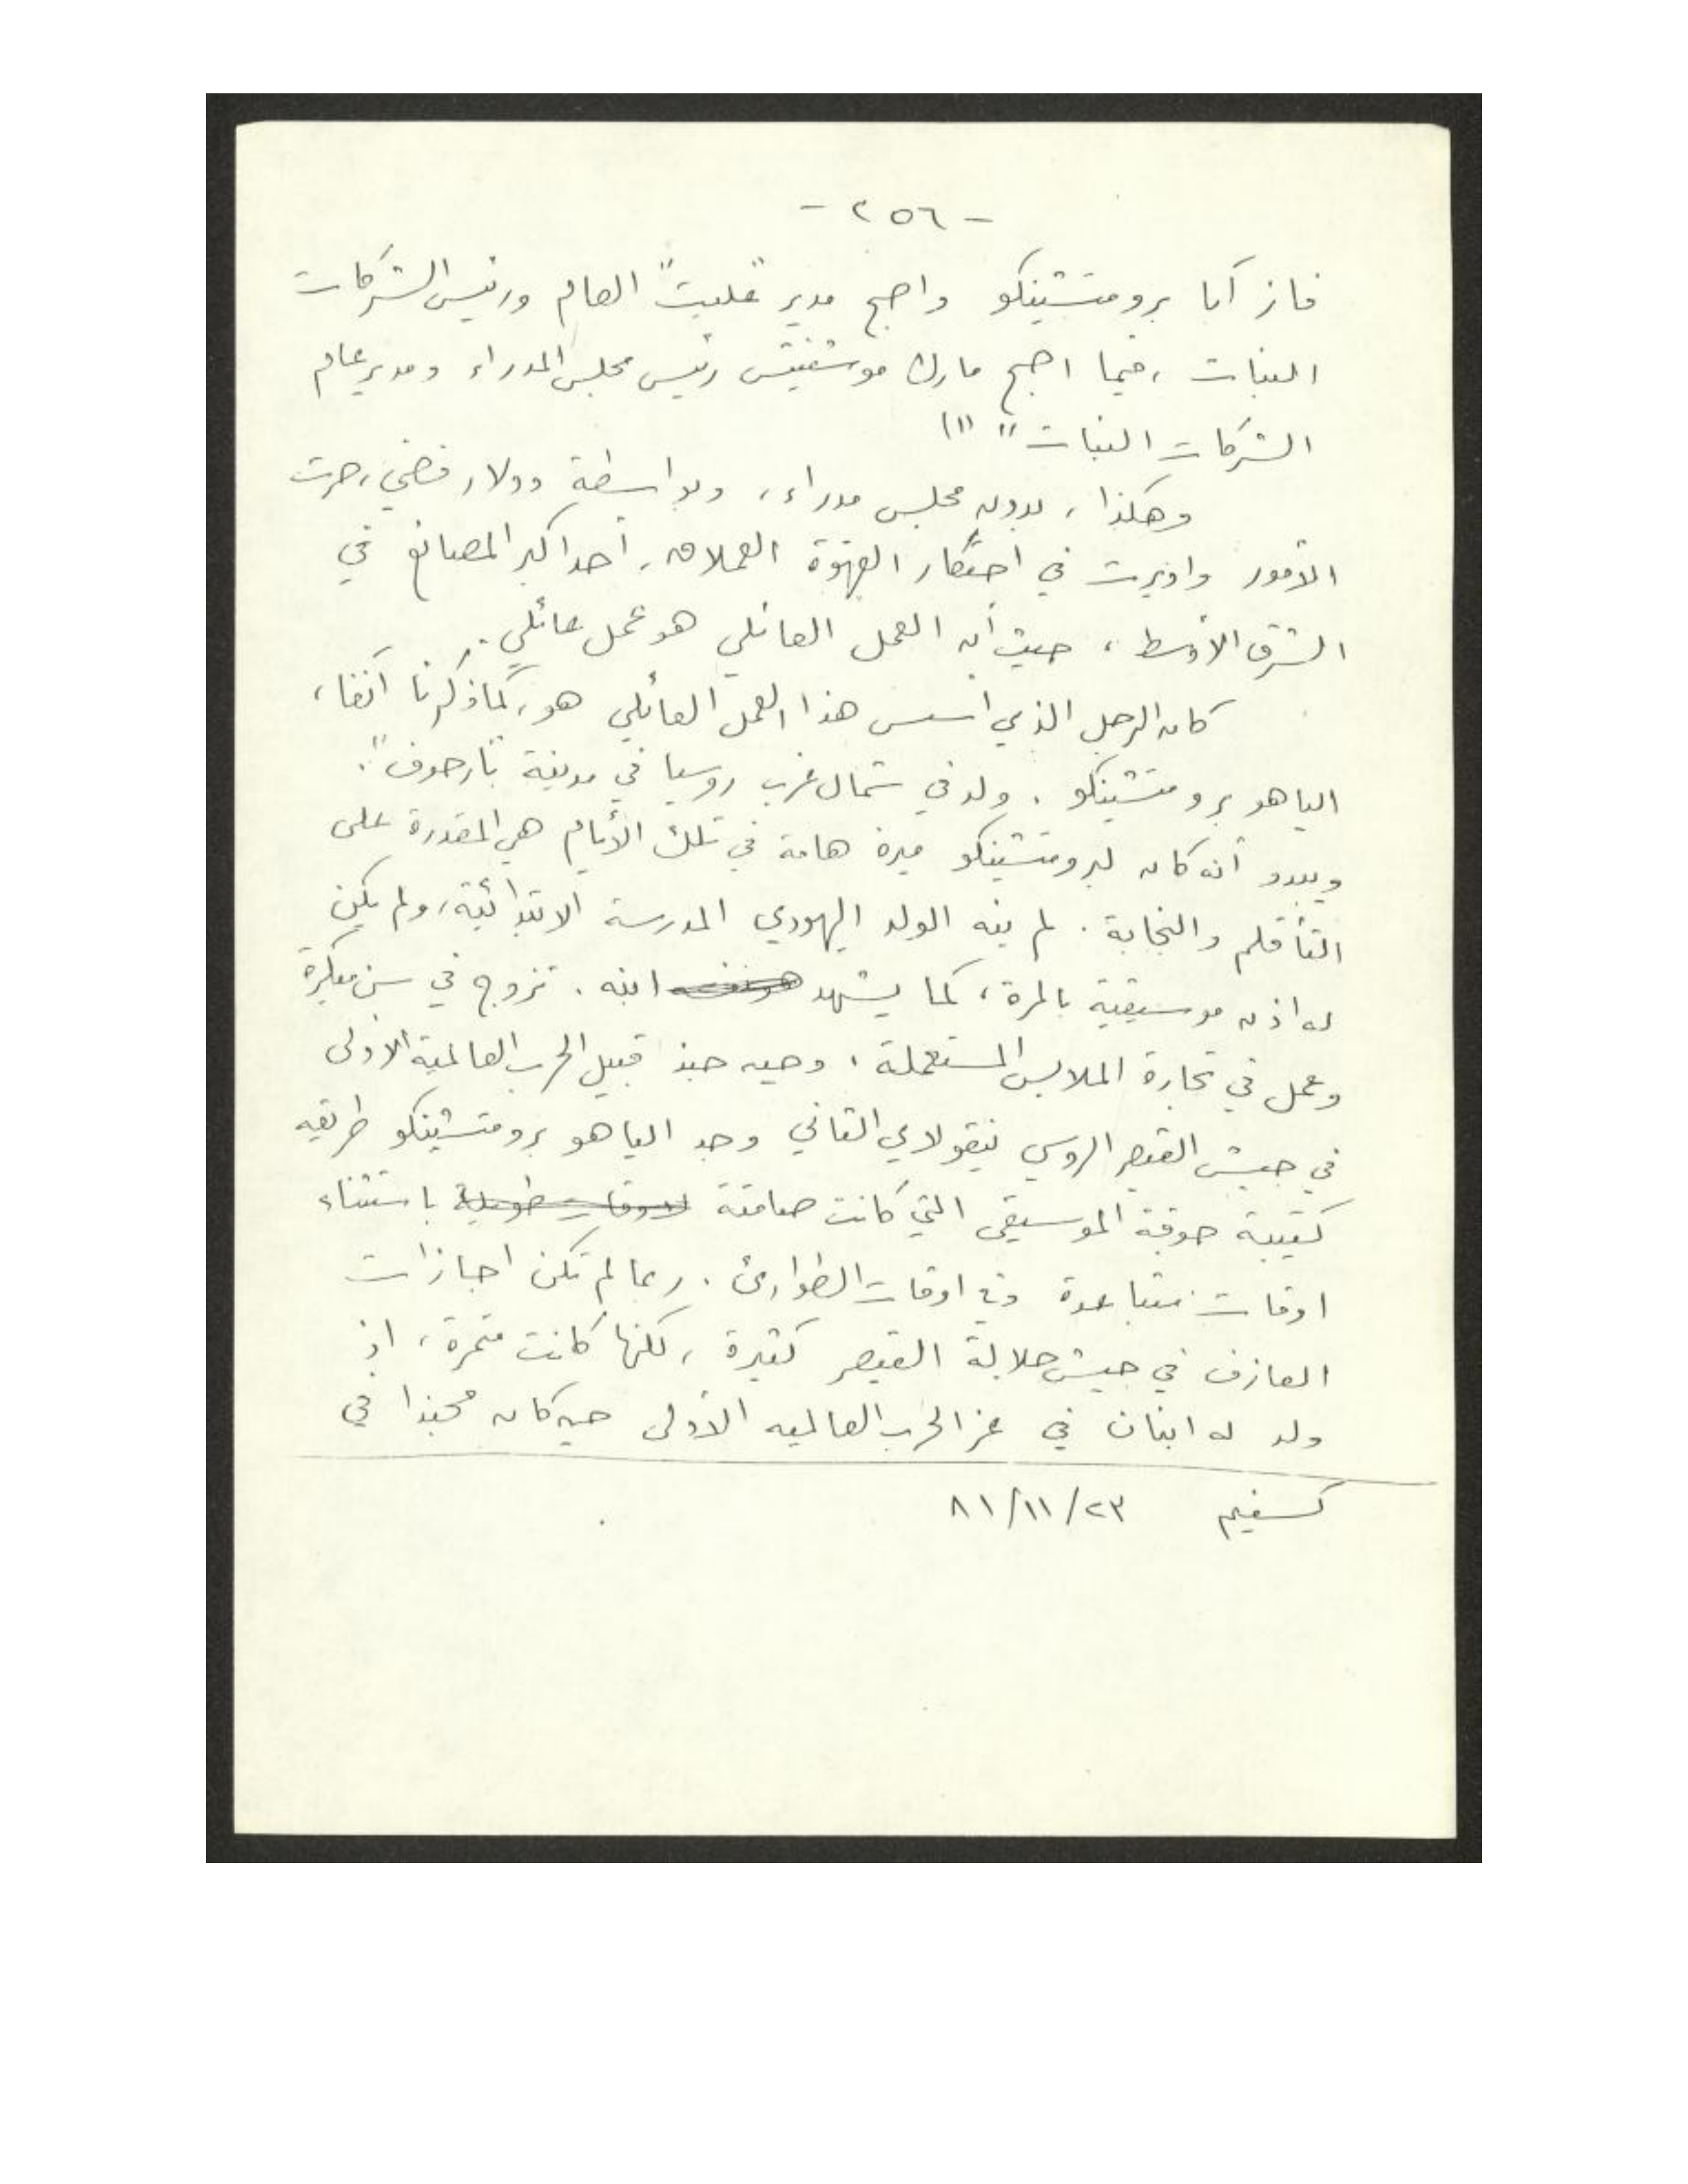 - ٢٥٦ -
فاز أبا برومتشينكو واصبح مدير "عليت" العام ورئيس الشركات
البنات ، فيما اصبح مارك موشفيتس رئيس مجلس المدراء ومدير عام
الشركات البنات" (١)
وهكذا ، بدون مجلس مدراء ، وبواسطة دولار فضي ، جرت
الأمور وادبرت في احتكار القهوة العملاق ، أحد اكبر المصانع في
الشرق الأوسط ، حيث أن العمل العائلي هو عمل عائلي .
كان الرجل الذي اسس هذا العمل العائلي هو ، كما ذكرنا آنفا ،
الياهو برومتشينكو . ولد في شمال غرب روسيا في مدينة
ويبدو أنه كان لبرومتشينكو ميزة هامة في تلك الأيام هي المقدرة على
التأقلم والنجابة . لم ينه الولد اليهودي المدرسة الابتدائية ، ولم يكن
له اذن موسيقية بالمرة ، كما يشهد ابنه . تزوج في سن مبكرة
وعمل في تجارة الملابس المستعملة . وحين جند قبيل الحرب العالمية الاولى
في جيش القيصر الروسي نيقولاي الثاني وجد الياهو برومتشينكو طريقه
كتيبة جوقة الموسيقى التي كانت صامتة لاوقات طويلة باستثناء
اوقات متباعدة وفي اوقات الطوارئ . ربما لم تكن اجازات
العازف في جيش جلالة القيصر كثيرة ، لكنها كانت مثمرة ، اذ
ولد له ابنان في عز الحرب العالميه الأولى حين كان مجندا في
كسفيم ٢٣/١١/٨١